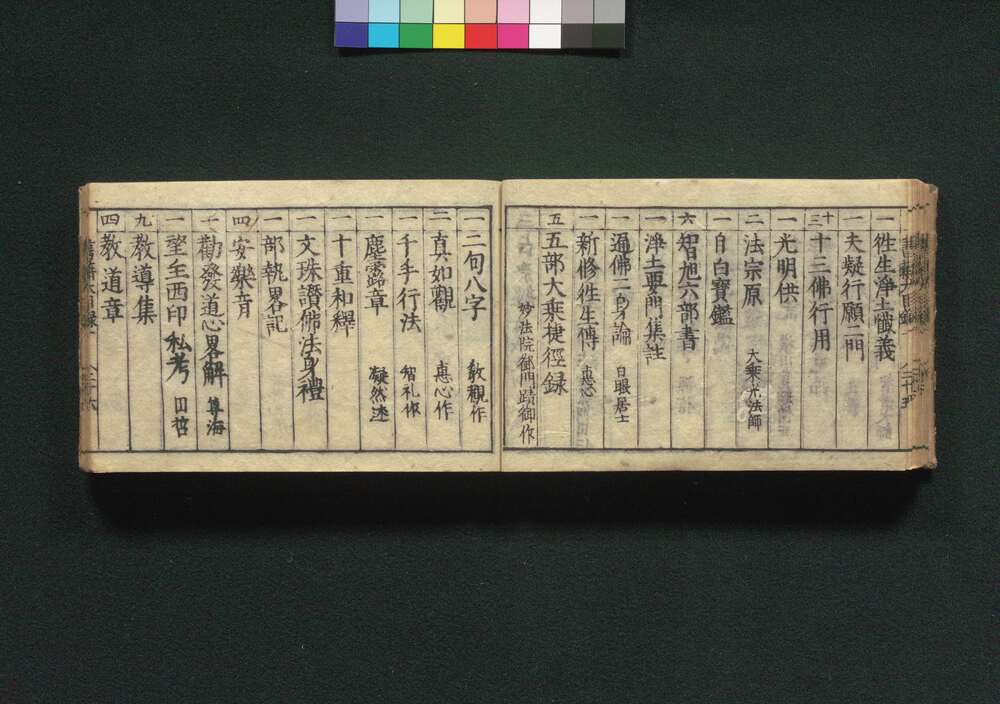 一 往生淨土懺義
一 大疑行願二門
十三 十三佛行用
一 光明供
二 法宗原 大乘光法師
一 自白寶鑑
六 智旭六部書
一 淨土要門集註
一 通佛二身論 日眼居士
一 新修往生傳 惠心
五 五部大乘捷徑録 妙法院御門蹟御作
一 三句八字 敎觀作
二 真如觀 惠心作
一 千手行法 智礼作
一 塵露章 凝然述
一 十重和釋
一 文珠讃佛法身禮
一 部執畧記
四 安樂音
一 勸發道心畧解 算海
一 聖全西印 私考 日哲
九 教導集
四 教道章